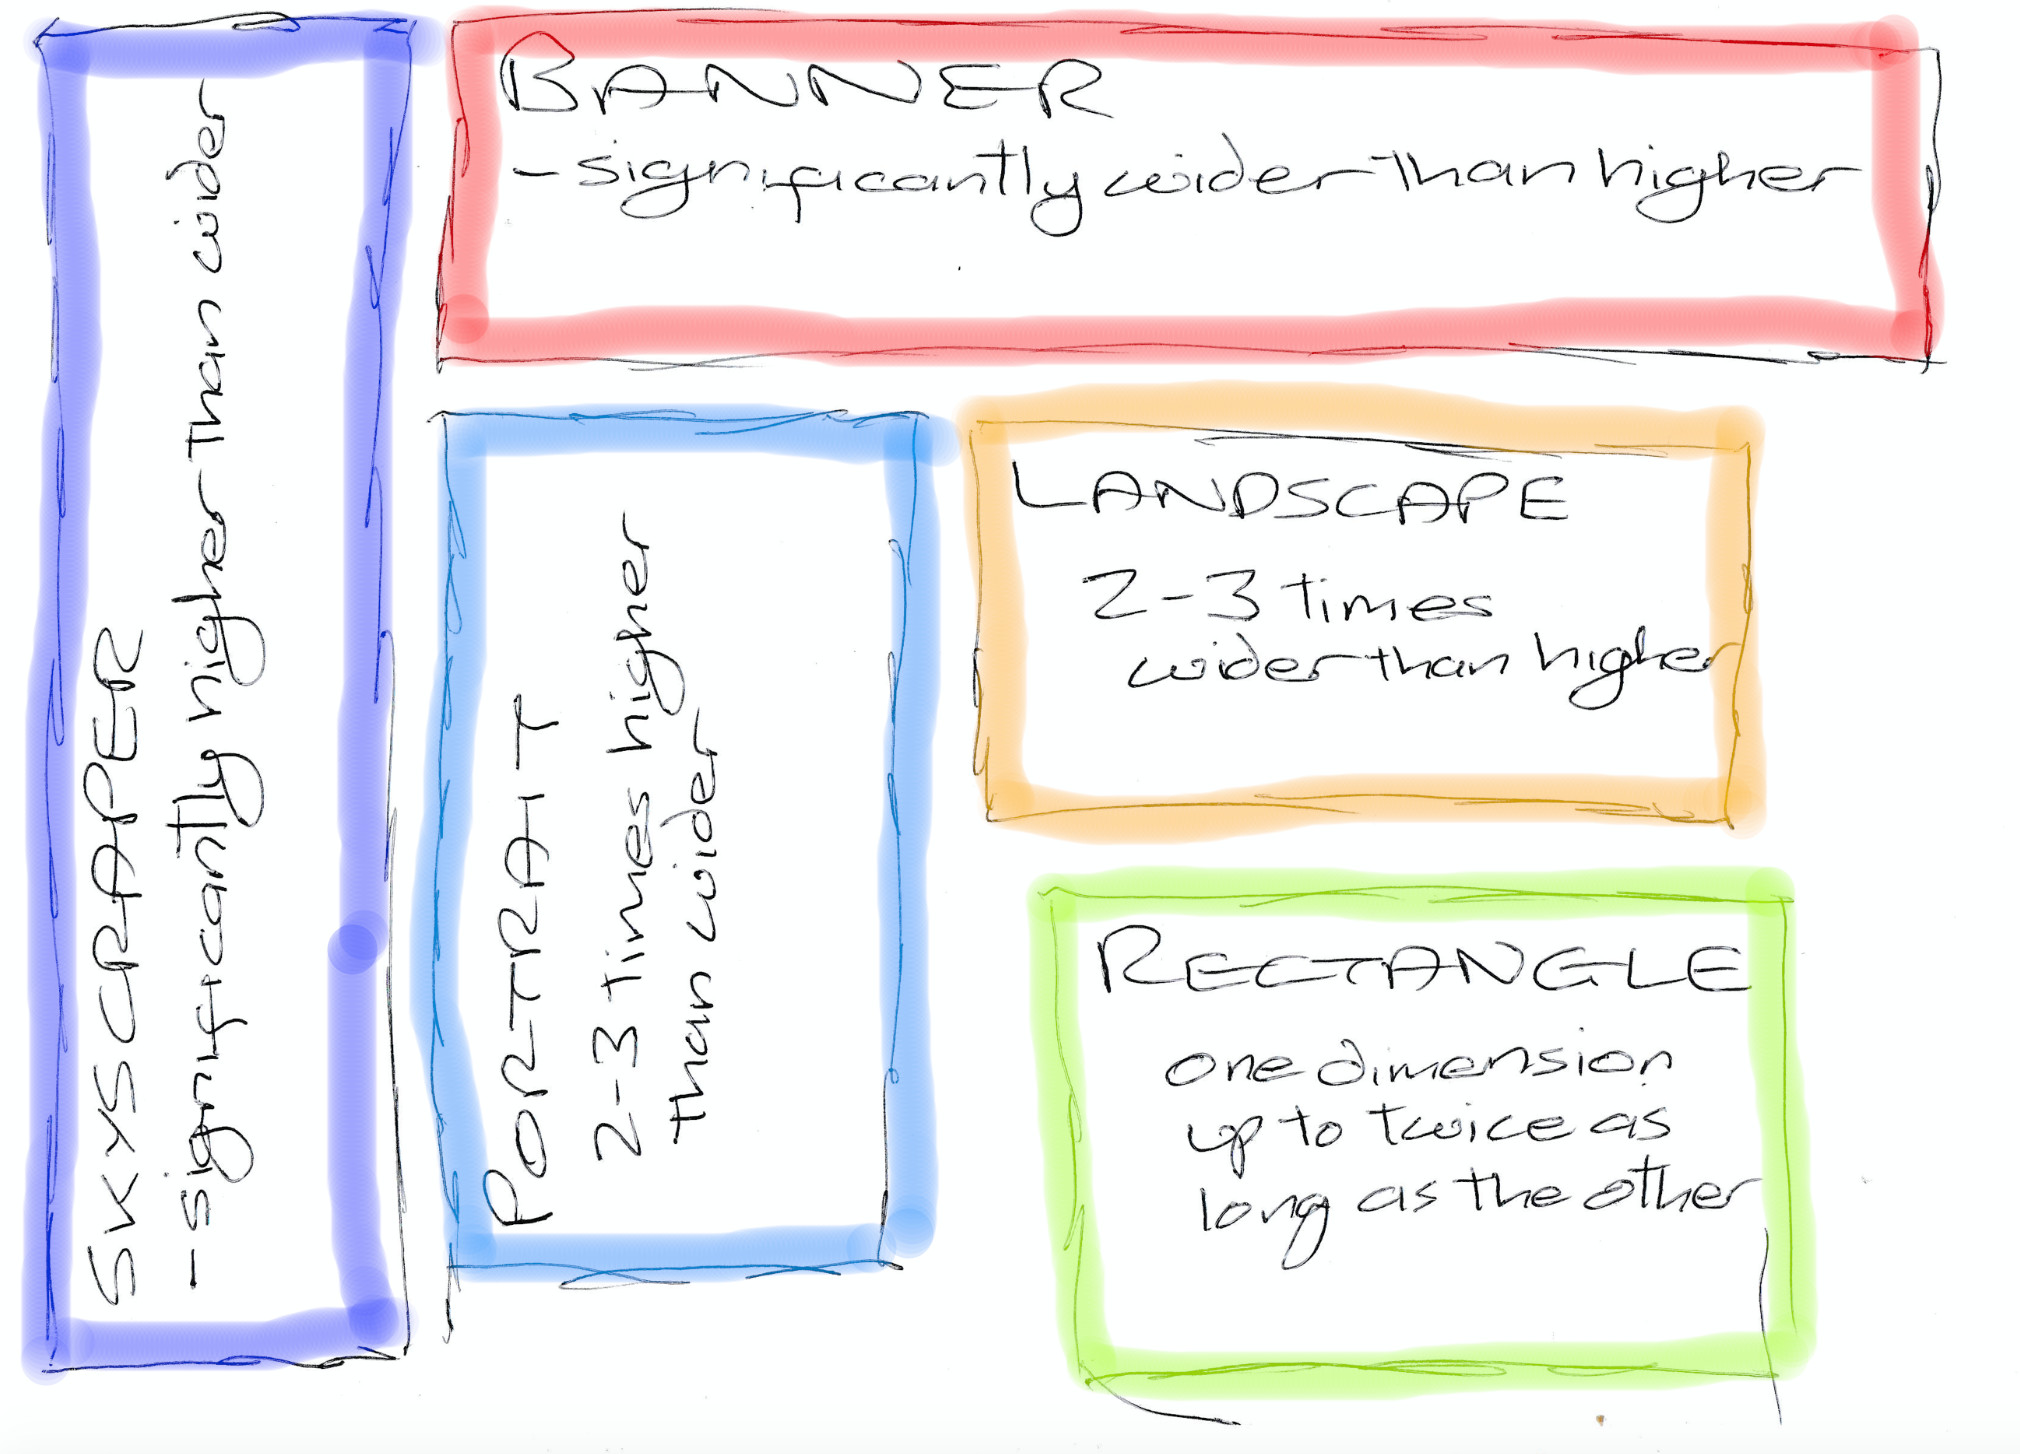 SKYSCRAPER
- significantly higher than wider
BANNER
- significantly wider than higher
PORTRAIT
2-3 times higher
than wider
LANDSCAPE
2-3 times
wider than higher
RECTANGLE
one dimension
up to twice as
long as the other